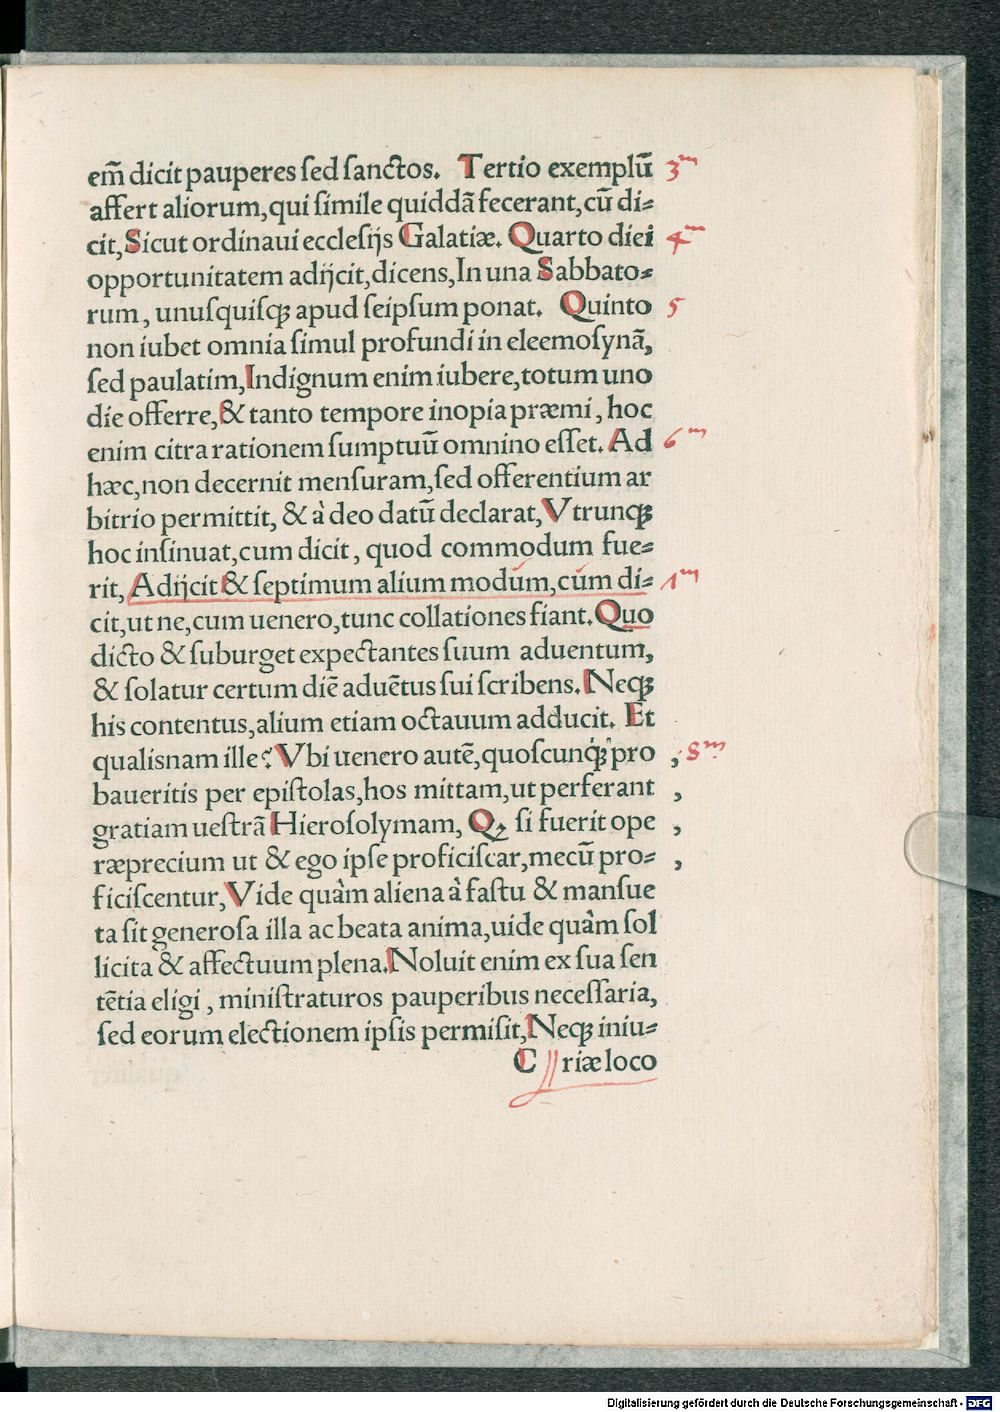 em̃ dicit pauperes ſed ſanctos. Tertio exemplũ 3ᵐ
affert aliorum,qui ſimile quiddã fecerant,cũ di⸗
cit,Sicut ordinaui eccleſijs Galatiæ. Quarto diei 4ᵐ
opportunitatem adijcit,dicens,In una Sabbato⸗
rum, unuſquiſqꝫ apud ſeipſum ponat. Quinto 5
non iubet omnia ſimul profundi in eleemoſynã,
ſed paulatim,Indignum enim iubere,totum uno
die offerre,& tanto tempore inopia præmi, hoc
enim citra rationem ſumptuũ omnino eſſet. Ad 6ᵐ
hæc,non decernit menſuram,ſed offerentium ar
bitrio permittit, & à deo datũ declarat,Vtrunqꝫ
hoc inſinuat,cum dicit, quod commodum fue⸗
rit, Adijcit & ſeptimum alium modum,cum di⸗ 1ᵐ
cit,ut ne,cum uenero,tunc collationes fiant.Quo
dicto & ſuburget expectantes ſuum aduentum,
& ſolatur certum diẽ aduẽtus ſui ſcribens.Neqꝫ
his contentus,alium etiam octauum adducit. Et
qualisnam ille? Vbi uenero autẽ,quoſcunqꝫ pro , 8ᵐ
baueritis per epiſtolas,hos mittam,ut perferant ,
gratiam ueſtrã Hieroſolymam, Qꝫ ſi fuerit ope ,
ræprecium ut & ego ipſe proficiſcar,mecũ pro⸗ ,
ficiſcentur,Vide quàm aliena à faſtu & manſue
ta ſit generoſa illa ac beata anima,uide quàm ſol
licita & affectuum plena.Noluit enim ex ſua ſen
tẽtia eligi, miniſtraturos pauperibus neceſſaria,
ſed eorum electionem ipſis permiſit,Neqꝫ iniu⸗
C riæ loco
Digitalisierung gefördert durch die Deutsche Forschungsgemeinschaft - DFG